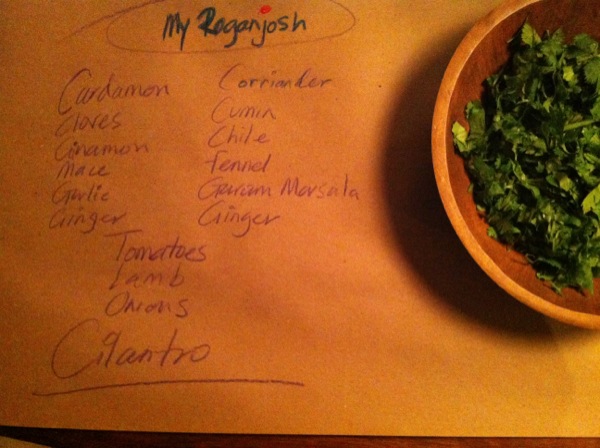 My Roganjosh
Cardamon Corriander
Cloves Cumin
Cinamon Chile
Mace Fennel
Garlic Garam Marsala
Ginger Ginger
Tomatoes
Lamb
Onions
Cilantro